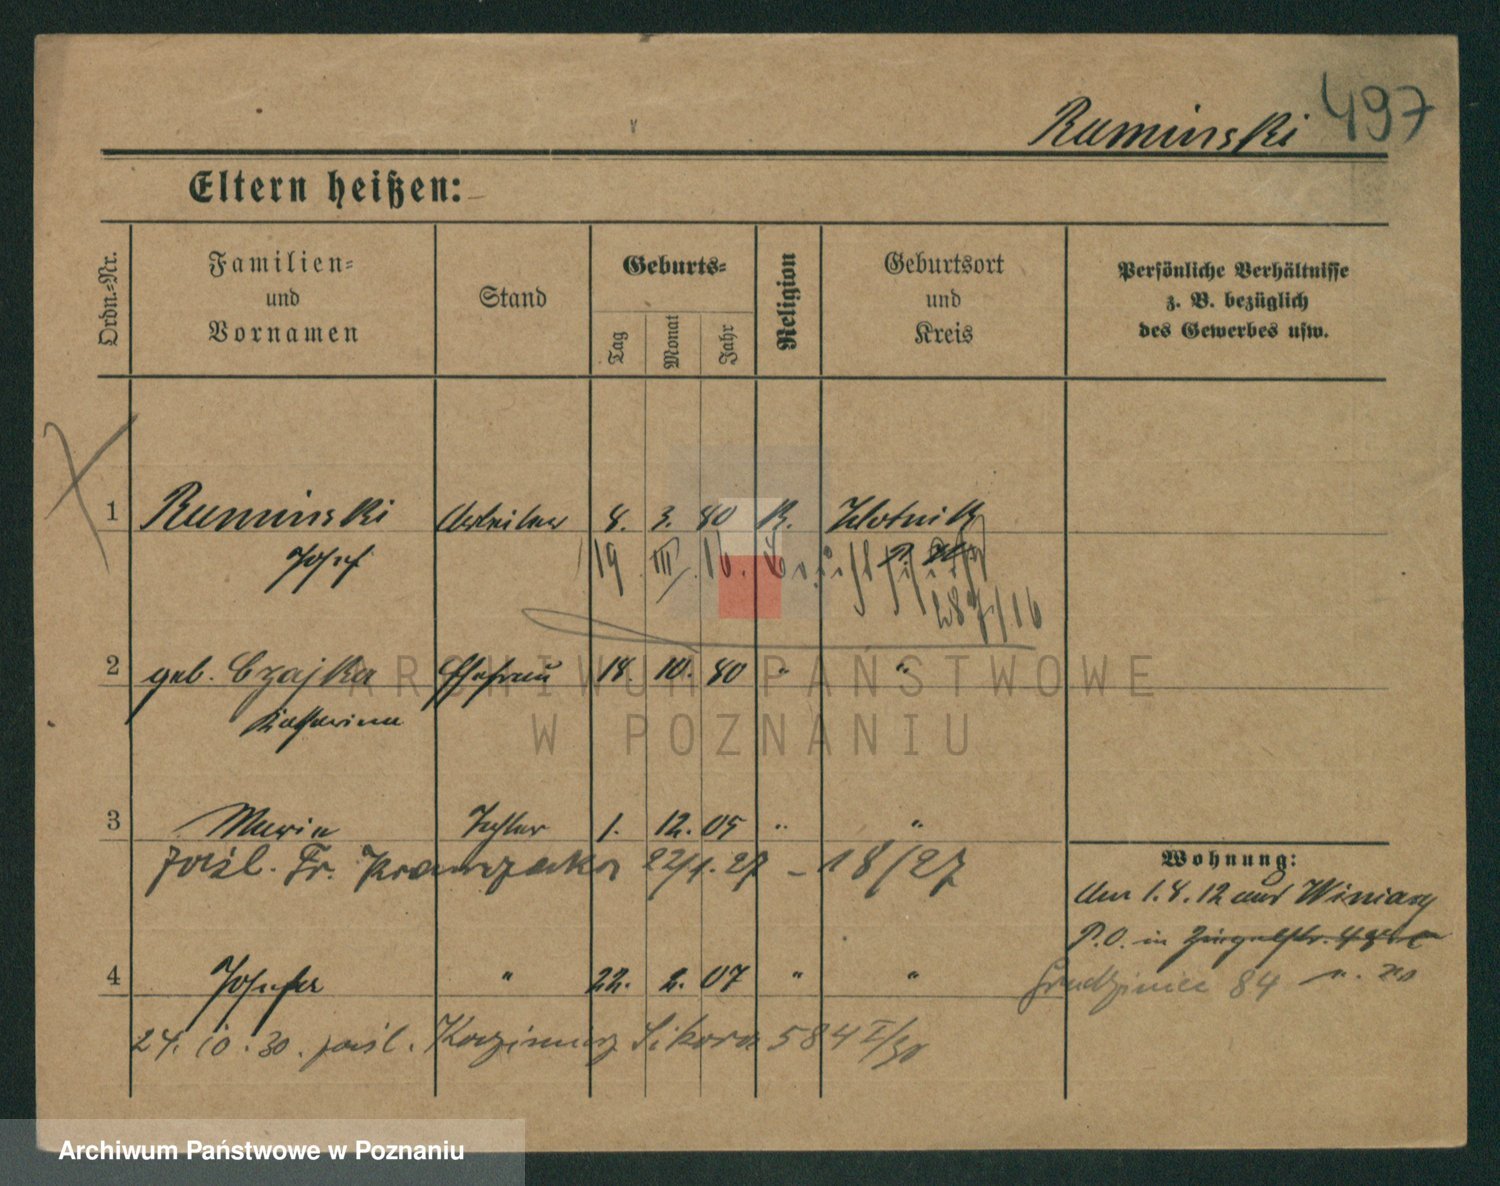 497
Ruminski
Eltern heißen:
Ordn.-Nr.
Familien-
und
Vornamen
Stand
Geburts-
Tag
Monat
Jahr
Religion
Geburtsort
und
Kreis
Persönliche Verhältnisse
z. B. bezüglich
des Gewerbes usw.
1 Ruminski Arbeiter 8. 3. 80 K. Zlotnik
Josef
19 III 16.
28/ /16
2 geb. Czajka Ehefrau 18. 10. 80 " "
Katharina
3 Maria Tochter 1. 12. 05 " "
zaśl. Fr. Krawczaka 22/1. 27 – 18/27
Wohnung:
Am 1.8.12 aus Winiary
P.O. in Ziegelstr.
4 Josefa " 22. 2. 07 " "
Grudzieniec 84
24. 10. 30. zaśl. Kazimierz Sikora 584 I/30
ARCHIWUM PAŃSTWOWE
W POZNANIU
Archiwum Państwowe w Poznaniu